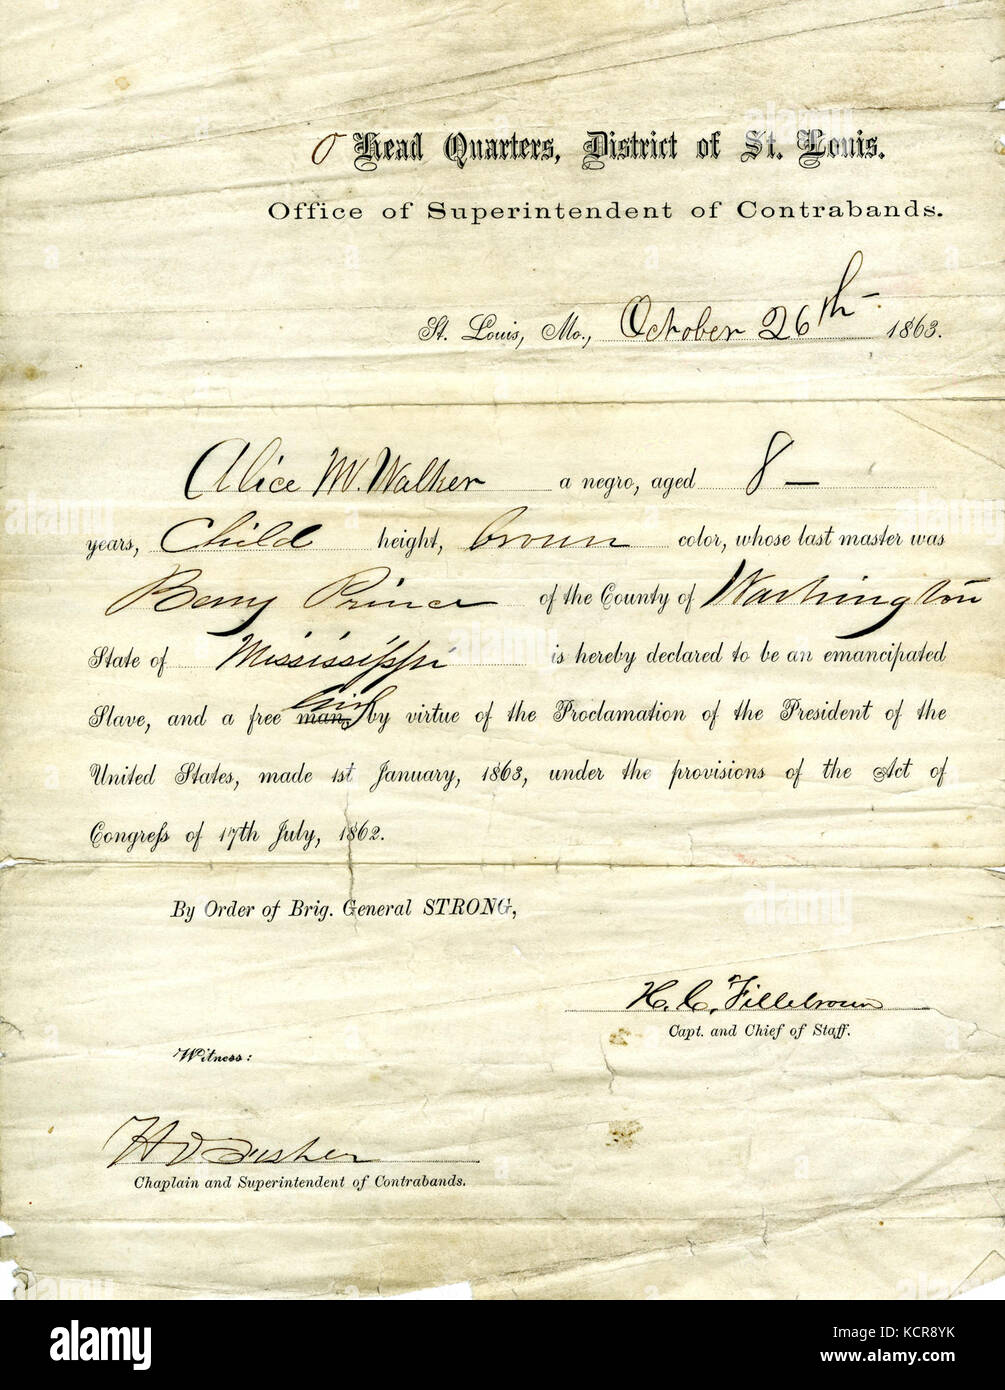 Head Quarters, District of St. Louis.
Office of Superintendent of Contrabands.
St. Louis, Mo., October 26th 1863.
Alice M. Walker a negro, aged 8 —
years, Child height, brown color, whose last master was
Berry Prince of the County of Washington
State of Mississippi is hereby declared to be an emancipated
Slave, and a free man, girl by virtue of the Proclamation of the President of the
United States, made 1st January, 1863, under the provisions of the Act of
Congreſs of 17th July, 1862.
By Order of Brig. General STRONG,
H. C. Fillebrown
Capt. and Chief of Staff.
Witness:
H D Fisher
Chaplain and Superintendent of Contrabands.
alamy
Image ID: KCR8YK
www.alamy.com